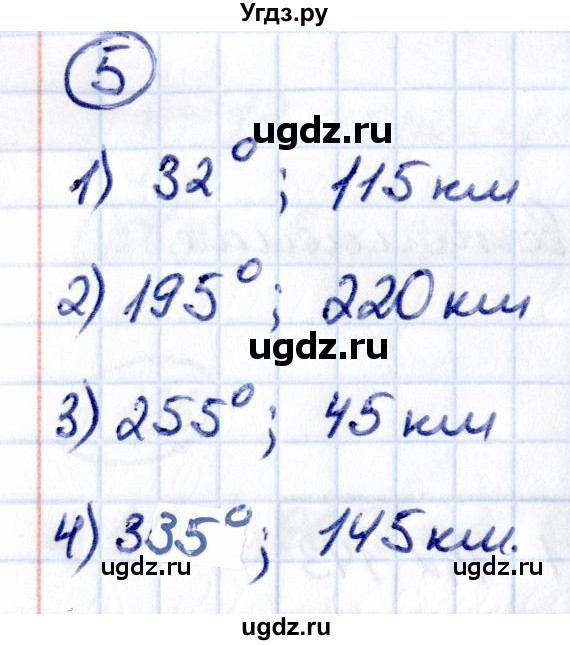 Угдз.ру
5
ugdz.ru
1) 32°; 115 км
2) 195°; 220 км
ugdz.ru
3) 255°; 45 км
4) 335°; 145 км.
ugdz.ru ugdz.ru
ugdz.ru